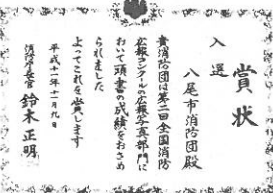 賞状
入選
八尾市消防団殿
貴消防団は第二回全国消防
広報コンクールの広報写真部門に
おいて頭書の成績をおさめ
られました
よってこれを賞します
平成十一年十一月九日
消防庁長官 鈴木正明